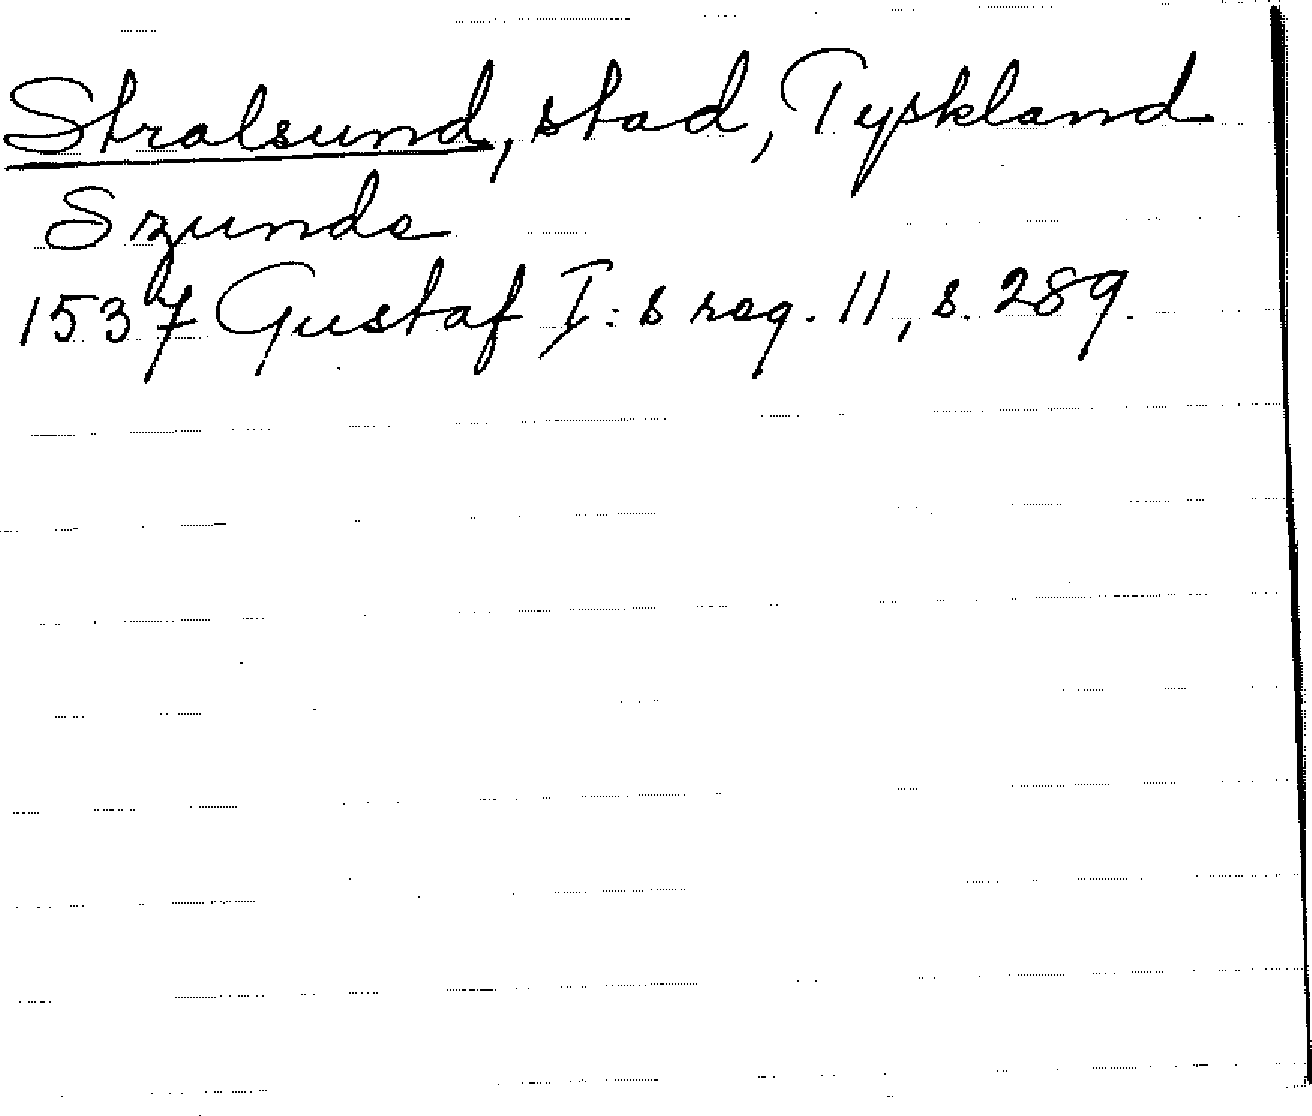 Stralsund, stad, Tyskland
Szunde
1537 Gustaf I:s reg. 11, s. 289.